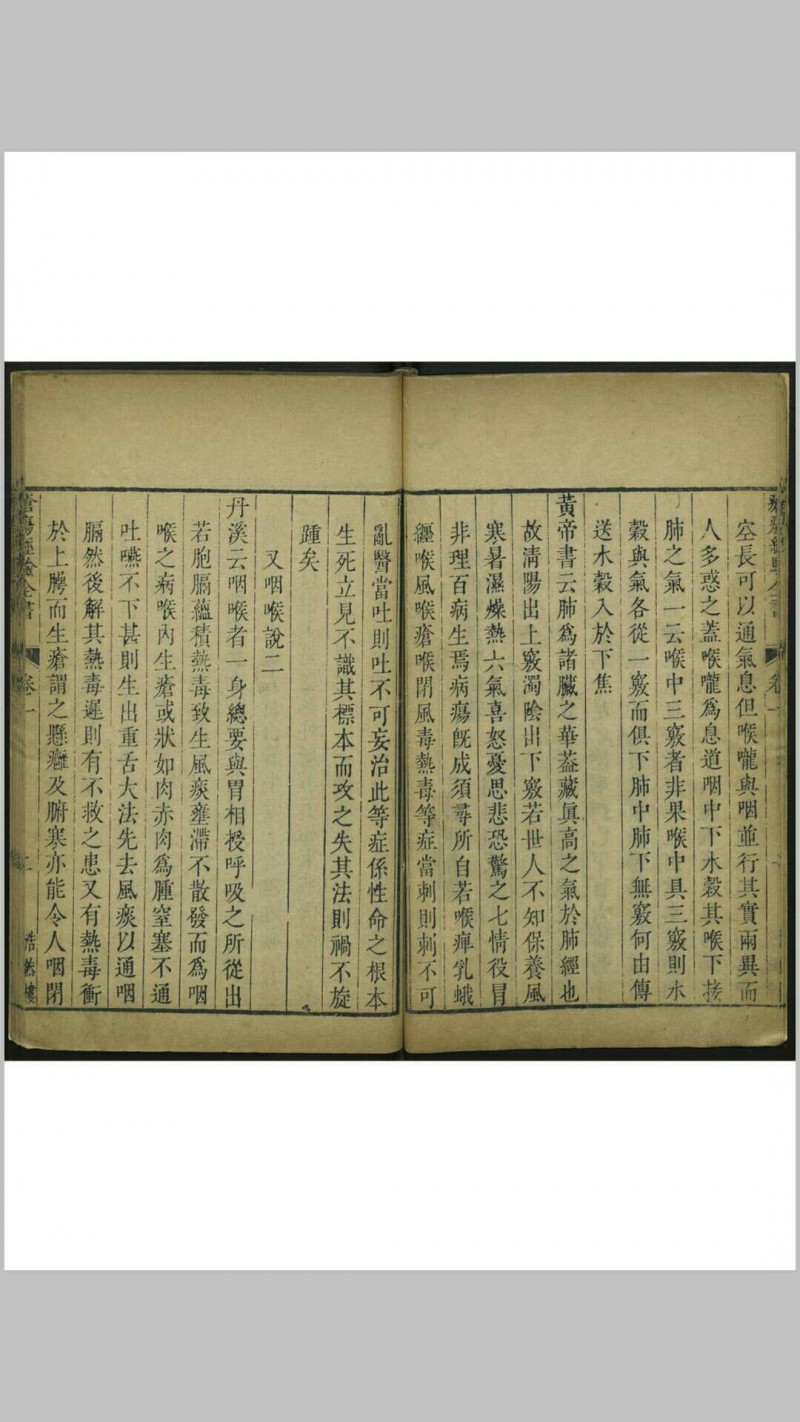 空長可以通氣息但喉嚨與咽並行其實兩異而
人多惑之蓋喉嚨爲息道咽中下水穀其喉下接
肺之氣一云喉中三竅者非果喉中具三竅則水
穀與氣各從一竅而俱下肺中肺下無竅何由傳
送水穀入於下焦
黃帝書云肺爲諸臟之華葢藏眞高之氣於肺經也
故淸陽出上竅濁陰出下竅若世人不知保養風
寒暑濕燥熱六氣喜怒憂思悲恐驚之七情役冒
非理百病生焉病瘍旣成須尋所自若喉痺乳蛾
纒喉風喉瘡喉閉風毒熱毒等症當刺則刺不可
亂醫當吐則吐不可妄治此等症係性命之根本
生死立見不識其標本而攻之失其法則禍不旋
踵矣
又咽喉說二
丹溪云咽喉者一身總要與胃相授呼吸之所從出
若胞膈蘊積熱毒致生風痰壅滯不散發而爲咽
喉之病喉內生瘡或狀如肉赤肉爲腫窒塞不通
吐嚥不下甚則生出重舌大法先去風痰以通咽
膈然後解其熱毒遲則有不救之患又有熱毒衝
於上腭而生瘡謂之懸癰及腑寒亦能令人咽閉
瘡瘍經驗全書
卷一
二
浩然樓